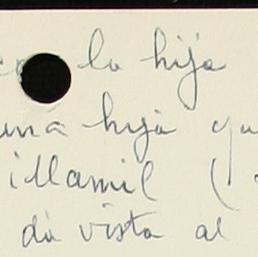 la hija
una hija
illamil (
dá vista al